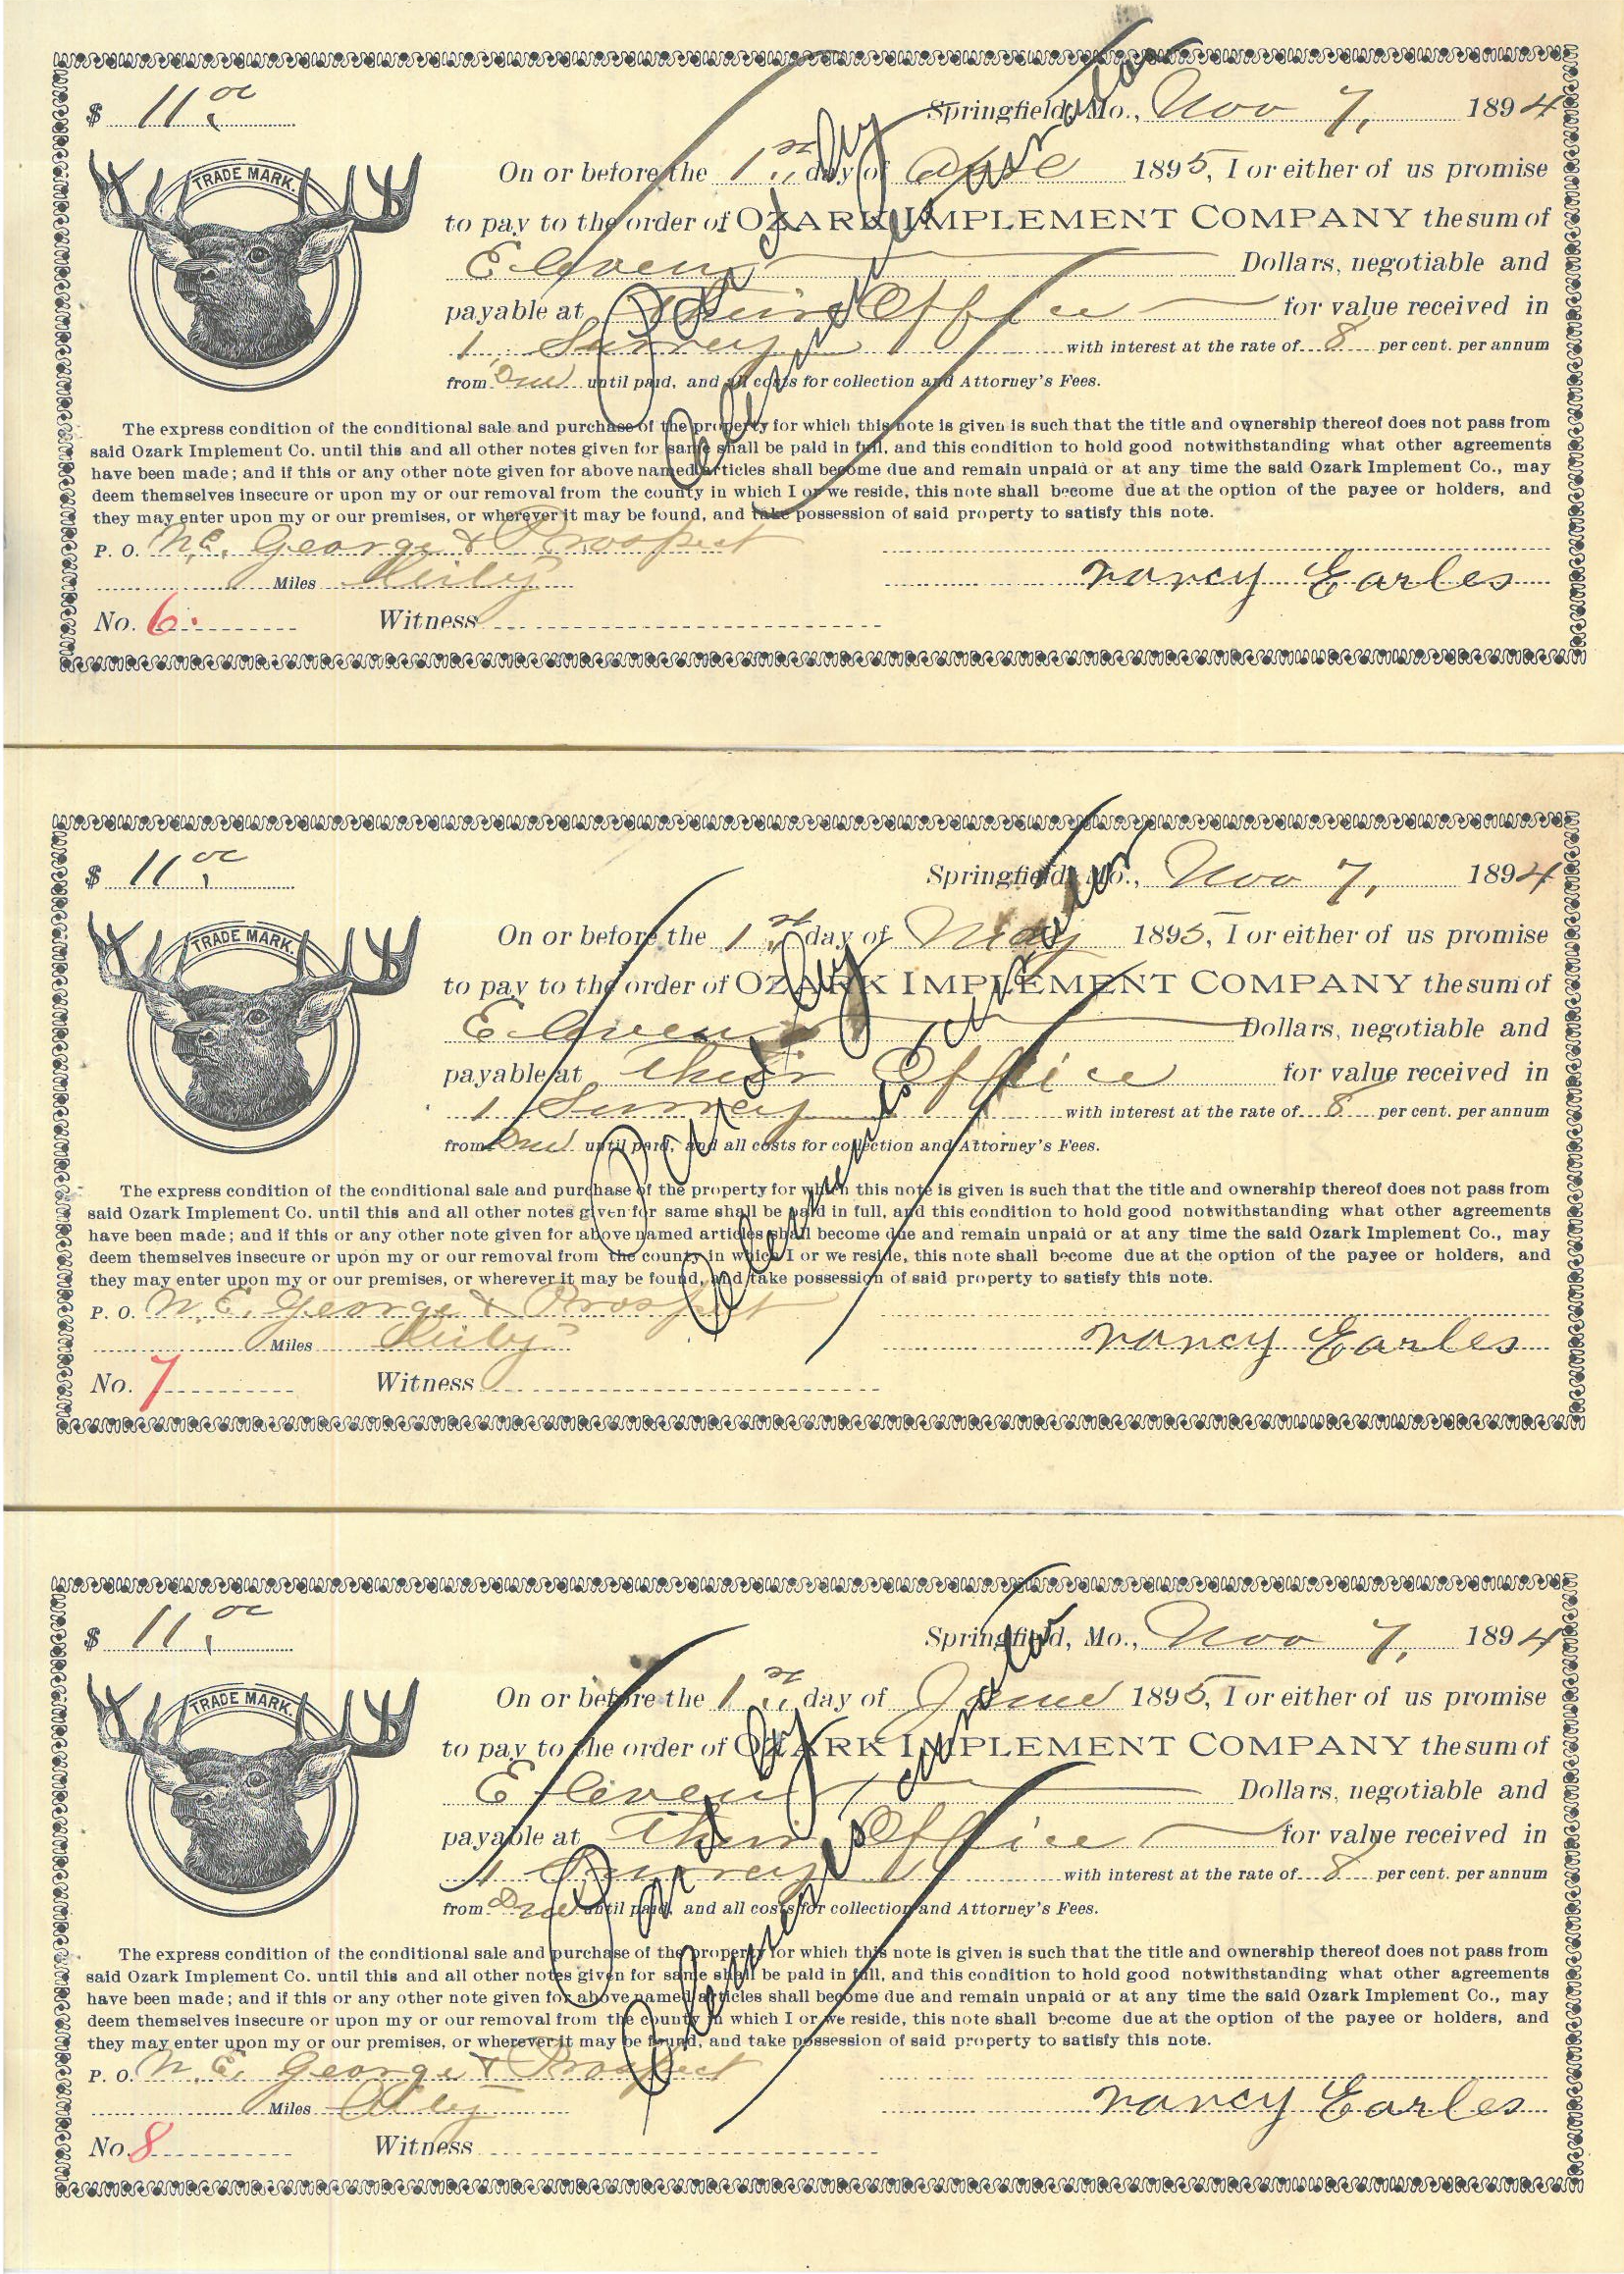 $ 11.00 Springfield, Mo., Nov 7, 1894
TRADE MARK.
On or before the 1st day of Apl 1895, I or either of us promise
to pay to the order of OZARK IMPLEMENT COMPANY the sum of
Eleven Dollars, negotiable and
payable at Their Office for value received in
1 Surrey with interest at the rate of 8 per cent. per annum
from Due until paid, and all costs for collection and Attorney's Fees.
The express condition of the conditional sale and purchase of the property for which this note is given is such that the title and ownership thereof does not pass from
said Ozark Implement Co. until this and all other notes given for same shall be paid in full, and this condition to hold good notwithstanding what other agreements
have been made; and if this or any other note given for above named articles shall become due and remain unpaid or at any time the said Ozark Implement Co., may
deem themselves insecure or upon my or our removal from the county in which I or we reside, this note shall become due at the option of the payee or holders, and
they may enter upon my or our premises, or wherever it may be found, and take possession of said property to satisfy this note.
P. O. N.E. George & Prospect
Miles Nancy Earles
No. 6. Witness
Paid by
$ 11.00 Springfield, Mo., Nov 7, 1894
TRADE MARK.
On or before the 1st day of May 1895, I or either of us promise
to pay to the order of OZARK IMPLEMENT COMPANY the sum of
Eleven Dollars, negotiable and
payable at Their Office for value received in
1 Surrey with interest at the rate of 8 per cent. per annum
from Due until paid, and all costs for collection and Attorney's Fees.
The express condition of the conditional sale and purchase of the property for which this note is given is such that the title and ownership thereof does not pass from
said Ozark Implement Co. until this and all other notes given for same shall be paid in full, and this condition to hold good notwithstanding what other agreements
have been made; and if this or any other note given for above named articles shall become due and remain unpaid or at any time the said Ozark Implement Co., may
deem themselves insecure or upon my or our removal from the county in which I or we reside, this note shall become due at the option of the payee or holders, and
they may enter upon my or our premises, or wherever it may be found, and take possession of said property to satisfy this note.
P. O. N.E. George & Prospect
Miles Nancy Earles
No. 7 Witness
Paid by
$ 11.00 Springfield, Mo., Nov 7, 1894
TRADE MARK.
On or before the 1st day of June 1895, I or either of us promise
to pay to the order of OZARK IMPLEMENT COMPANY the sum of
Eleven Dollars, negotiable and
payable at Their Office for value received in
1 Surrey with interest at the rate of 8 per cent. per annum
from Due until paid, and all costs for collection and Attorney's Fees.
The express condition of the conditional sale and purchase of the property for which this note is given is such that the title and ownership thereof does not pass from
said Ozark Implement Co. until this and all other notes given for same shall be paid in full, and this condition to hold good notwithstanding what other agreements
have been made; and if this or any other note given for above named articles shall become due and remain unpaid or at any time the said Ozark Implement Co., may
deem themselves insecure or upon my or our removal from the county in which I or we reside, this note shall become due at the option of the payee or holders, and
they may enter upon my or our premises, or wherever it may be found, and take possession of said property to satisfy this note.
P. O. N.E. George & Prospect
Miles Nancy Earles
No. 8 Witness
Paid by